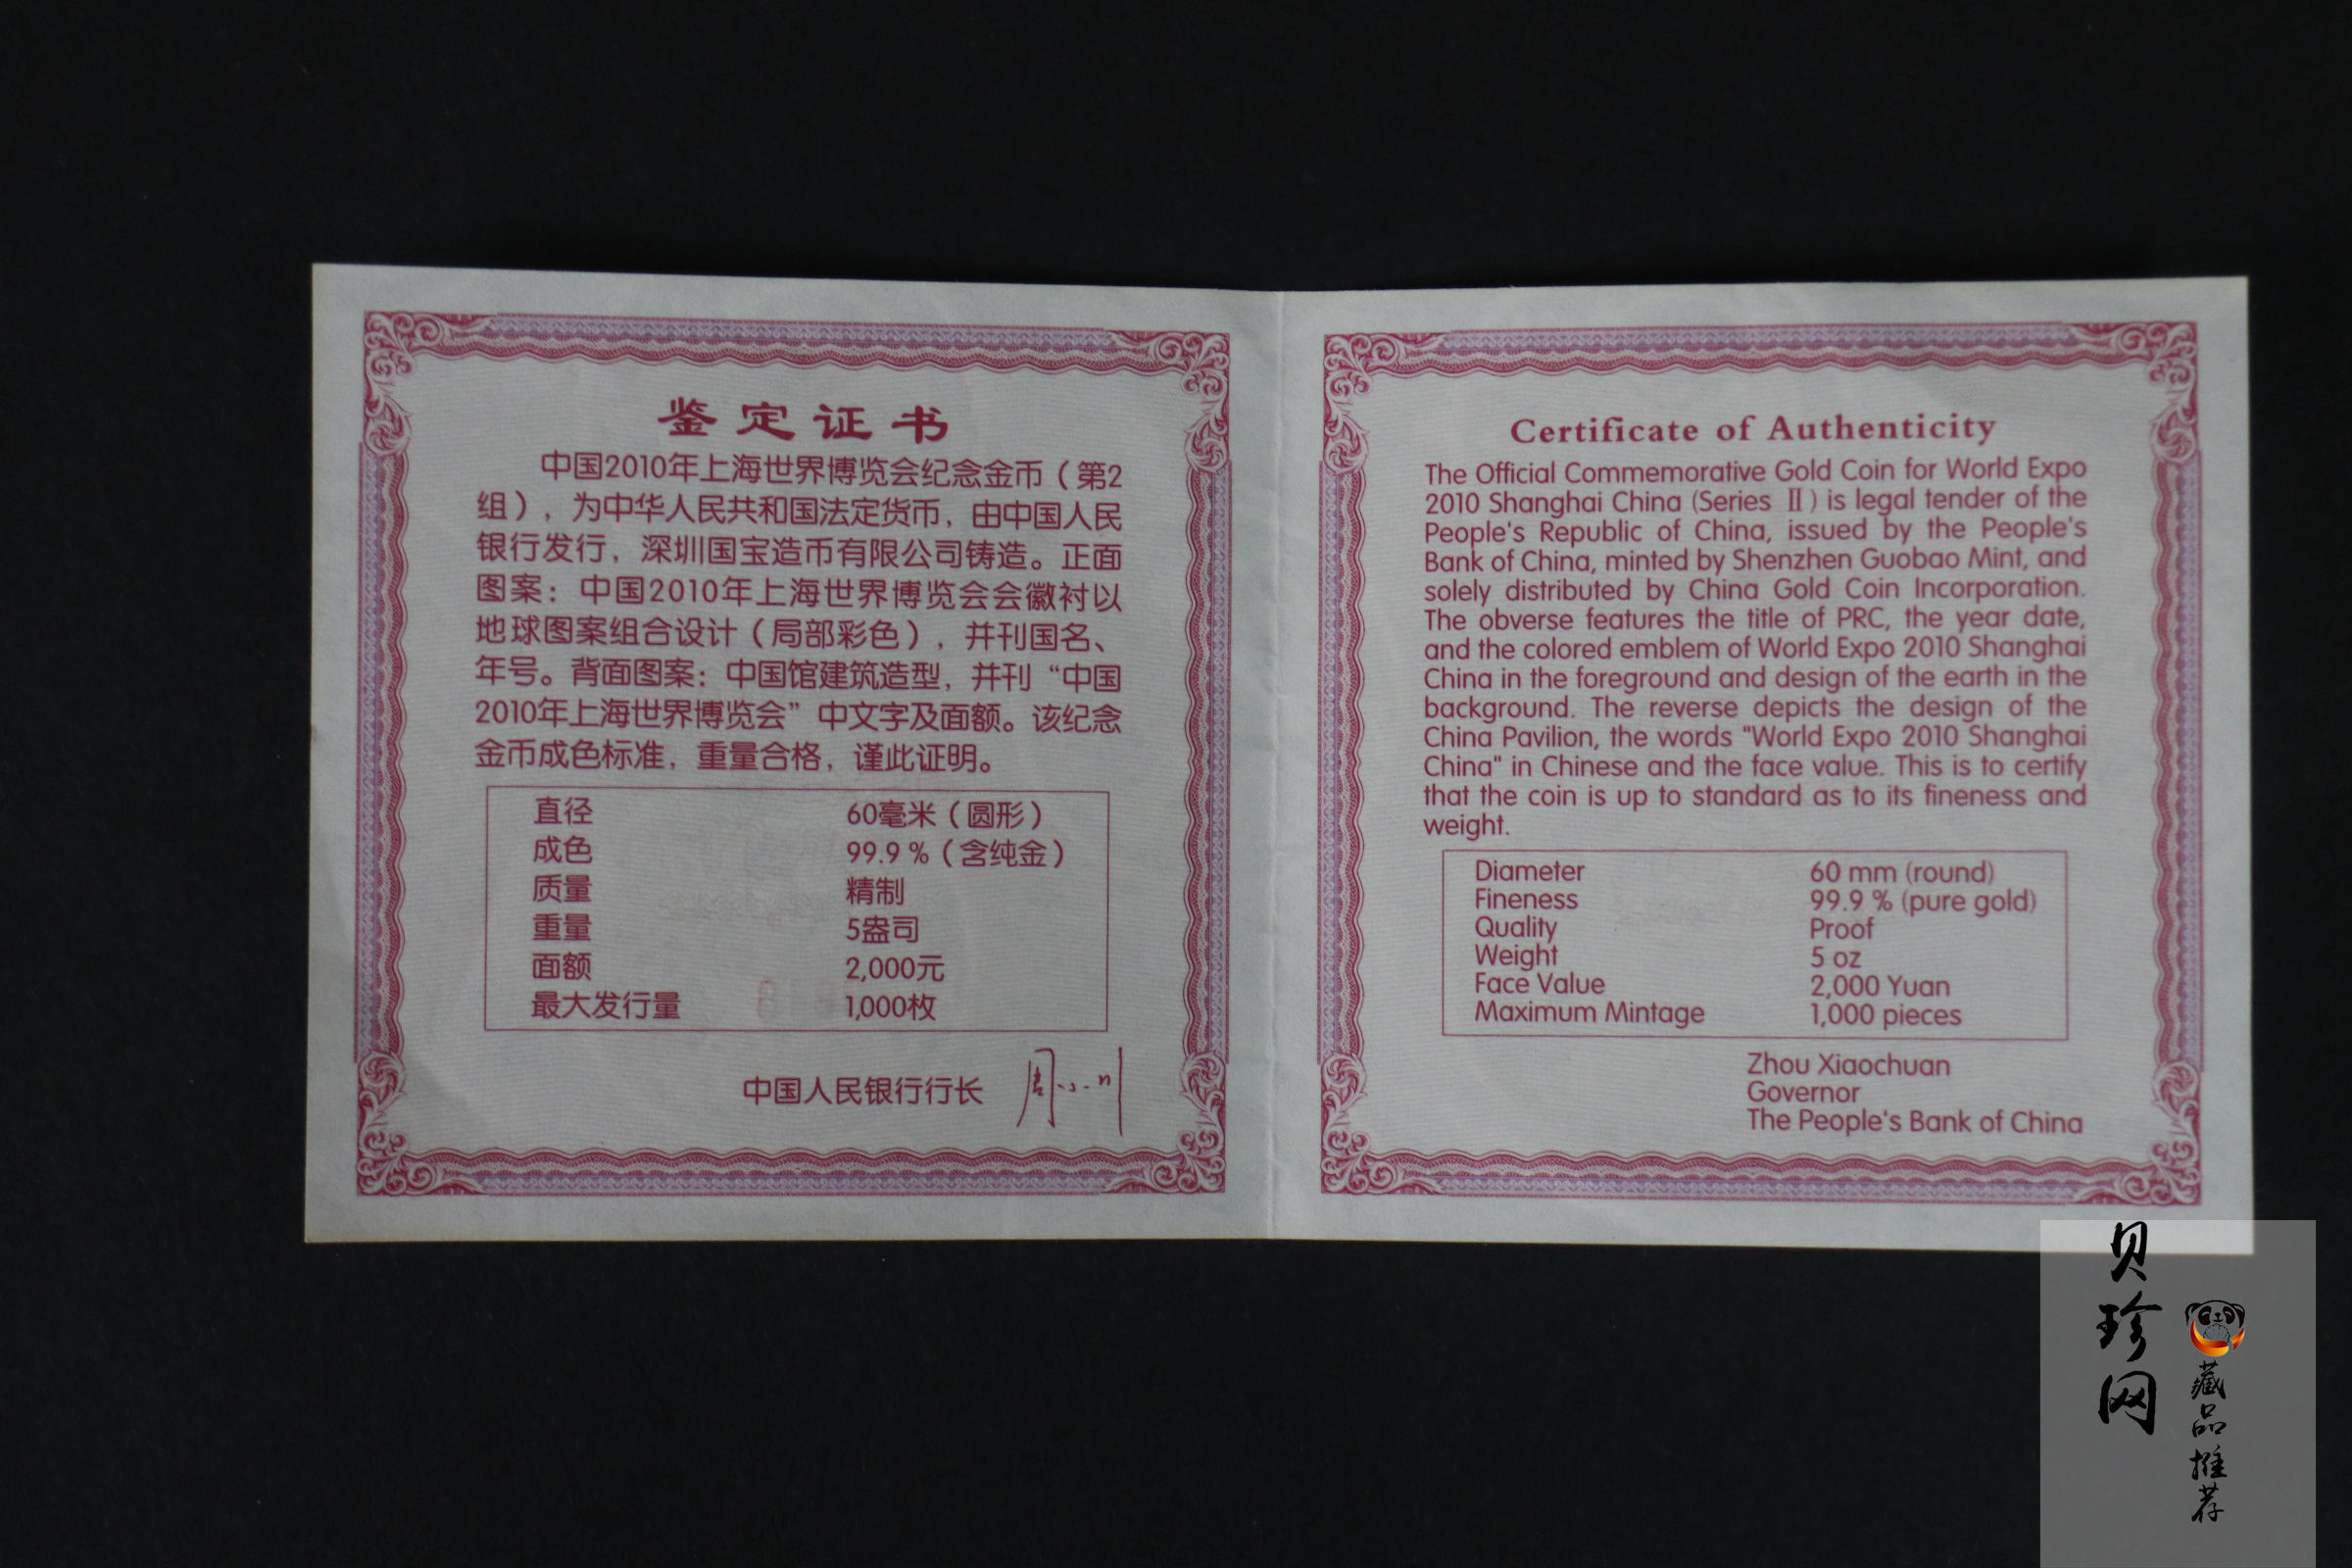 鉴定证书
中国2010年上海世界博览会纪念金币（第2
组），为中华人民共和国法定货币，由中国人民
银行发行，深圳国宝造币有限公司铸造。正面
图案：中国2010年上海世界博览会会徽衬以
地球图案组合设计（局部彩色），并刊国名、
年号。背面图案：中国馆建筑造型，并刊“中国
2010年上海世界博览会”中文字及面额。该纪念
金币成色标准，重量合格，谨此证明。
直径 60毫米（圆形）
成色 99.9％（含纯金）
质量 精制
重量 5盎司
面额 2,000元
最大发行量 1,000枚
中国人民银行行长 周小川
Certificate of Authenticity
The Official Commemorative Gold Coin for World Expo
2010 Shanghai China (Series Ⅱ) is legal tender of the
People's Republic of China, issued by the People's
Bank of China, minted by Shenzhen Guobao Mint, and
solely distributed by China Gold Coin Incorporation.
The obverse features the title of PRC, the year date,
and the colored emblem of World Expo 2010 Shanghai
China in the foreground and design of the earth in the
background. The reverse depicts the design of the
China Pavilion, the words "World Expo 2010 Shanghai
China" in Chinese and the face value. This is to certify
that the coin is up to standard as to its fineness and
weight.
Diameter 60 mm (round)
Fineness 99.9 % (pure gold)
Quality Proof
Weight 5 oz
Face Value 2,000 Yuan
Maximum Mintage 1,000 pieces
Zhou Xiaochuan
Governor
The People's Bank of China
贝珍网
藏品推荐